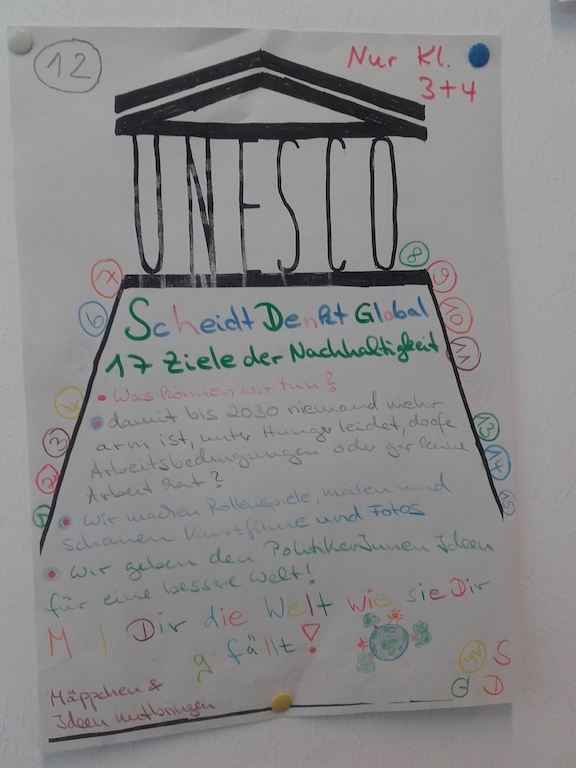 12
Nur Kl.
3+4
UNESCO
8
7 9
6 10
11
Scheidt Denkt Global
17 Ziele der Nachhaltigkeit
• Was können wir tun?
4
• damit bis 2030 niemand mehr
3 13
arm ist, unter Hunger leidet, doofe
14
Arbeitsbedingungen oder gar keine
2
Arbeit hat?
15
1
• Wir machen Rollenspiele, malen und
schauen Kurzfilme und Fotos
• Wir geben den PolitikerInnen Ideen
für eine bessere Welt!
M l Dir die Welt wie sie Dir
g fällt!
S
G D
Mäppchen &
Ideen mitbringen